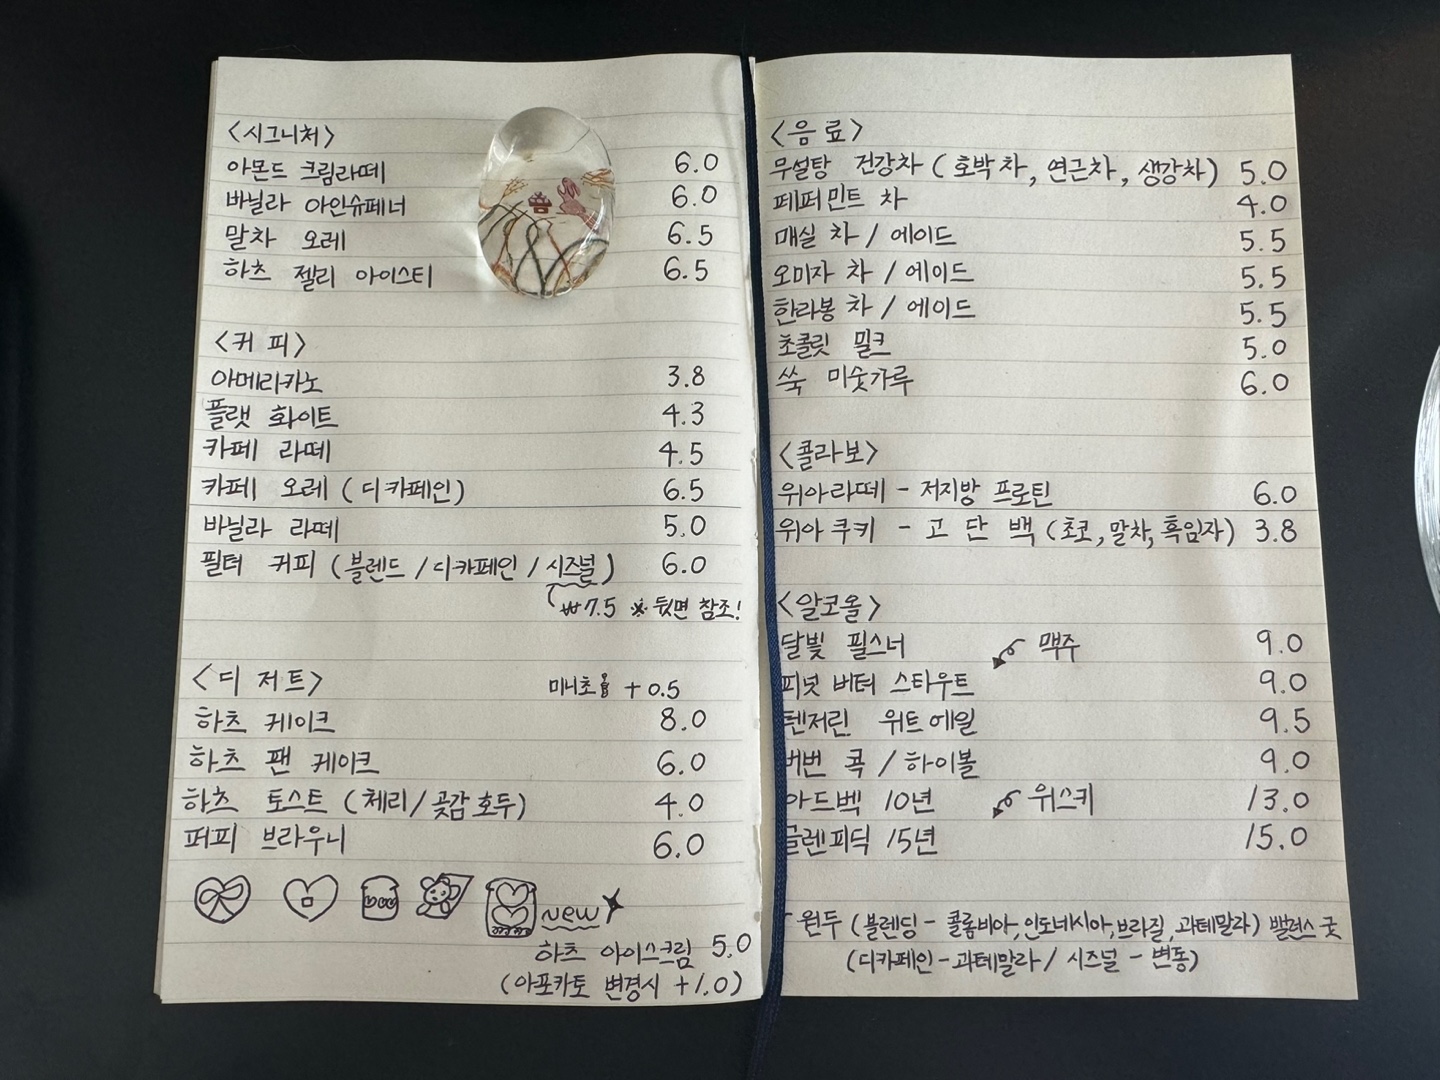 <시그니처>
아몬드 크림라떼 6.0
바닐라 아인슈페너 6.0
말차 오레 6.5
하츠 젤리 아이스티 6.5
<커피>
아메리카노 3.8
플랫 화이트 4.3
카페 라떼 4.5
카페 오레 (디카페인) 6.5
바닐라 라떼 5.0
필터 커피 (블렌드 / 디카페인 / 시즈널) 6.0
₩7.5 ※ 뒷면 참조!
<디저트> 미니초 + 0.5
하츠 케이크 8.0
하츠 팬 케이크 6.0
하츠 토스트 (체리/곶감호두) 4.0
퍼피 브라우니 6.0
New
하츠 아이스크림 5.0
(아포카토 변경시 +1.0)
<음료>
무설탕 건강차 (호박차, 연근차, 생강차) 5.0
페퍼민트 차 4.0
매실 차 / 에이드 5.5
오미자 차 / 에이드 5.5
한라봉 차 / 에이드 5.5
초콜릿 밀크 5.0
쑥 미숫가루 6.0
<콜라보>
위아라떼 - 저지방 프로틴 6.0
위아쿠키 - 고단백 (초코, 말차, 흑임자) 3.8
<알코올>
달빛 필스너 맥주 9.0
피넛 버터 스타우트 9.0
텐저린 위트에일 9.5
버번 콕 / 하이볼 9.0
아드벡 10년 위스키 13.0
글렌피딕 15년 15.0
원두 (블렌딩 - 콜롬비아, 인도네시아, 브라질, 과테말라) 밸런스 굿
(디카페인 - 과테말라 / 시즈널 - 변동)